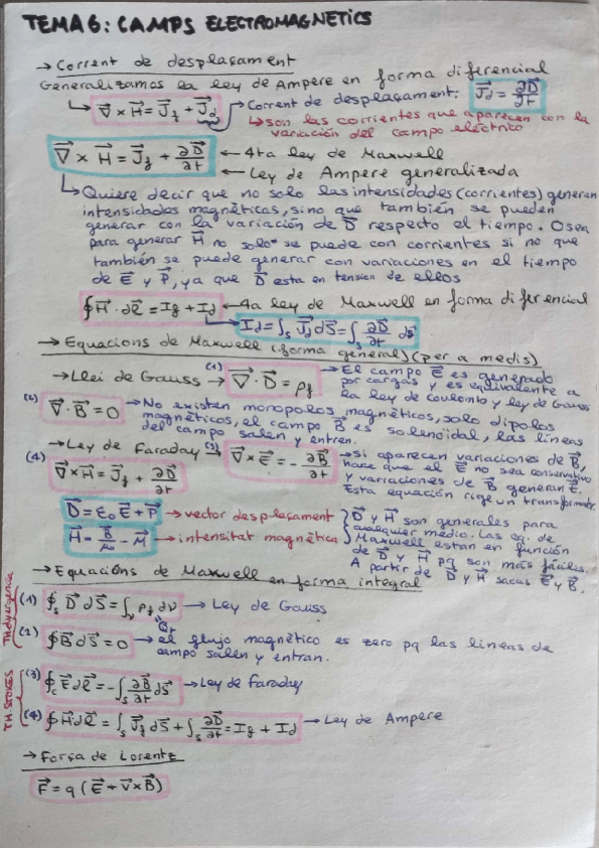 TEMA 6: CAMPS ELECTROMAGNETICS
→ Corrent de desplaçament
Generalizamos la ley de Ampere en forma diferencial
↳ ∇⃗ × H⃗ = J⃗f + J⃗d → Corrent de desplaçament: J⃗d = ∂D⃗/∂t
↳ son las corrientes que aparecen con la
variación del campo eléctrico
∇⃗ × H⃗ = J⃗f + ∂D⃗/∂t ← 4ta ley de Maxwell
← Ley de Ampere generalizada
↳ Quiere decir que no solo las intensidades (corrientes) generan
intensidades magnéticas, sino que también se pueden
generar con la variación de D⃗ respecto el tiempo. O sea
para generar H⃗ no solo se puede con corrientes si no que
también se puede generar con variaciones en el tiempo
de E⃗ y P⃗, ya que D⃗ esta en tension de ellos
∮H⃗·dl⃗ = If + Id ← 4a ley de Maxwell en forma diferencial
→ Id = ∫s J⃗d dS⃗ = ∫s ∂D⃗/∂t dS⃗
→ Equacions de Maxwell (forma general) (per a medis)
→ Llei de Gauss → (1) ∇⃗ · D⃗ = ρf → El campo E⃗ es generado
por cargas y es equivalente a
la ley de coulomb y ley de Gauss
(2) ∇⃗ · B⃗ = 0 → No existen monopolos magnéticos, solo dipolos
magnéticos, el campo B⃗ es solenoidal, las líneas
del campo salen y entren.
→ Ley de Faraday → (3) ∇⃗ × E⃗ = - ∂B⃗/∂t → si aparecen variaciones de B⃗,
hace que el E⃗ no sea conservativo
y variaciones de B⃗ generan E⃗.
Esta equación rige un transformador.
(4) ∇⃗ × H⃗ = J⃗f + ∂D⃗/∂t
D⃗ = ε₀ E⃗ + P⃗ → vector desplaçament
H⃗ = B⃗/μ₀ - M⃗ → intensitat magnética
D⃗ y H⃗ son generales para
cualquier medio. Las eq. de
Maxwell estan en función
de D⃗ y H⃗ pq son más fáciles.
A partir de D⃗ y H⃗ sacas E⃗ y B⃗.
→ Equacións de Maxwell en forma integral
TH. divergencia
(1) ∮s D⃗ dS⃗ = ∫v ρf dv → Ley de Gauss
(2) ∮B⃗ dS⃗ = 0 → el flujo magnético es zero pq las lineas de
campo salen y entran.
TH. STOKES
(3) ∮c E⃗ dl⃗ = -∫s ∂B⃗/∂t dS⃗ → Ley de Faraday
(4) ∮H⃗ dl⃗ = ∫s J⃗f dS⃗ + ∫s ∂D⃗/∂t = If + Id → Ley de Ampere
→ Força de Lorentz
F⃗ = q (E⃗ + v⃗ × B⃗)